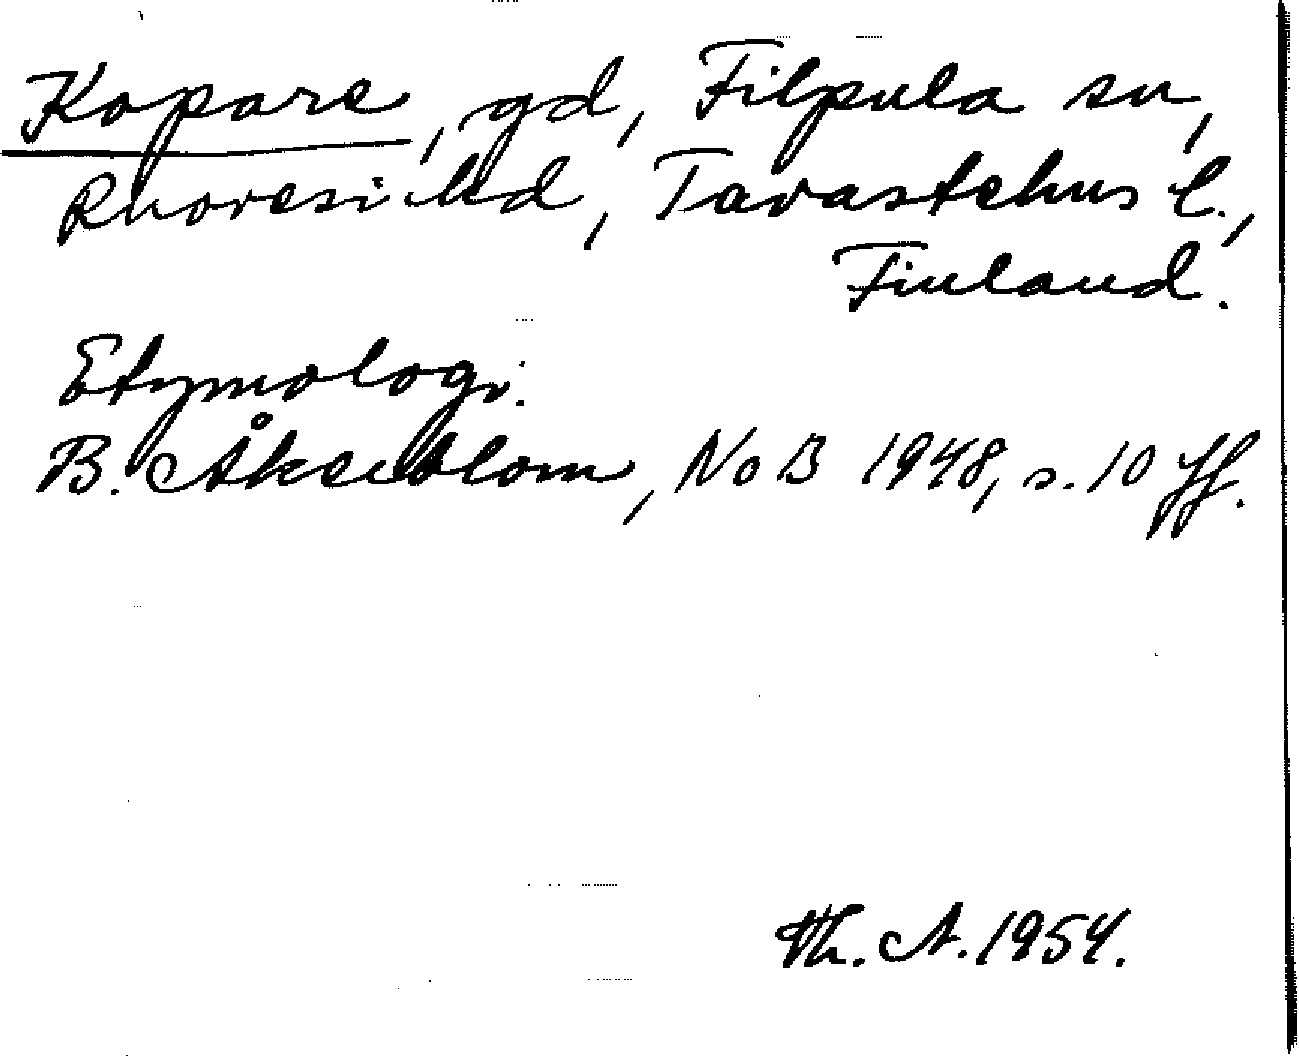 Kopare, gd, Filpula sn,
Ruovesi hd, Tavastehus l.,
Finland.
Etymologi:
B. Åkerblom, NoB 1948, s. 10 ff.
Th. A. 1954.